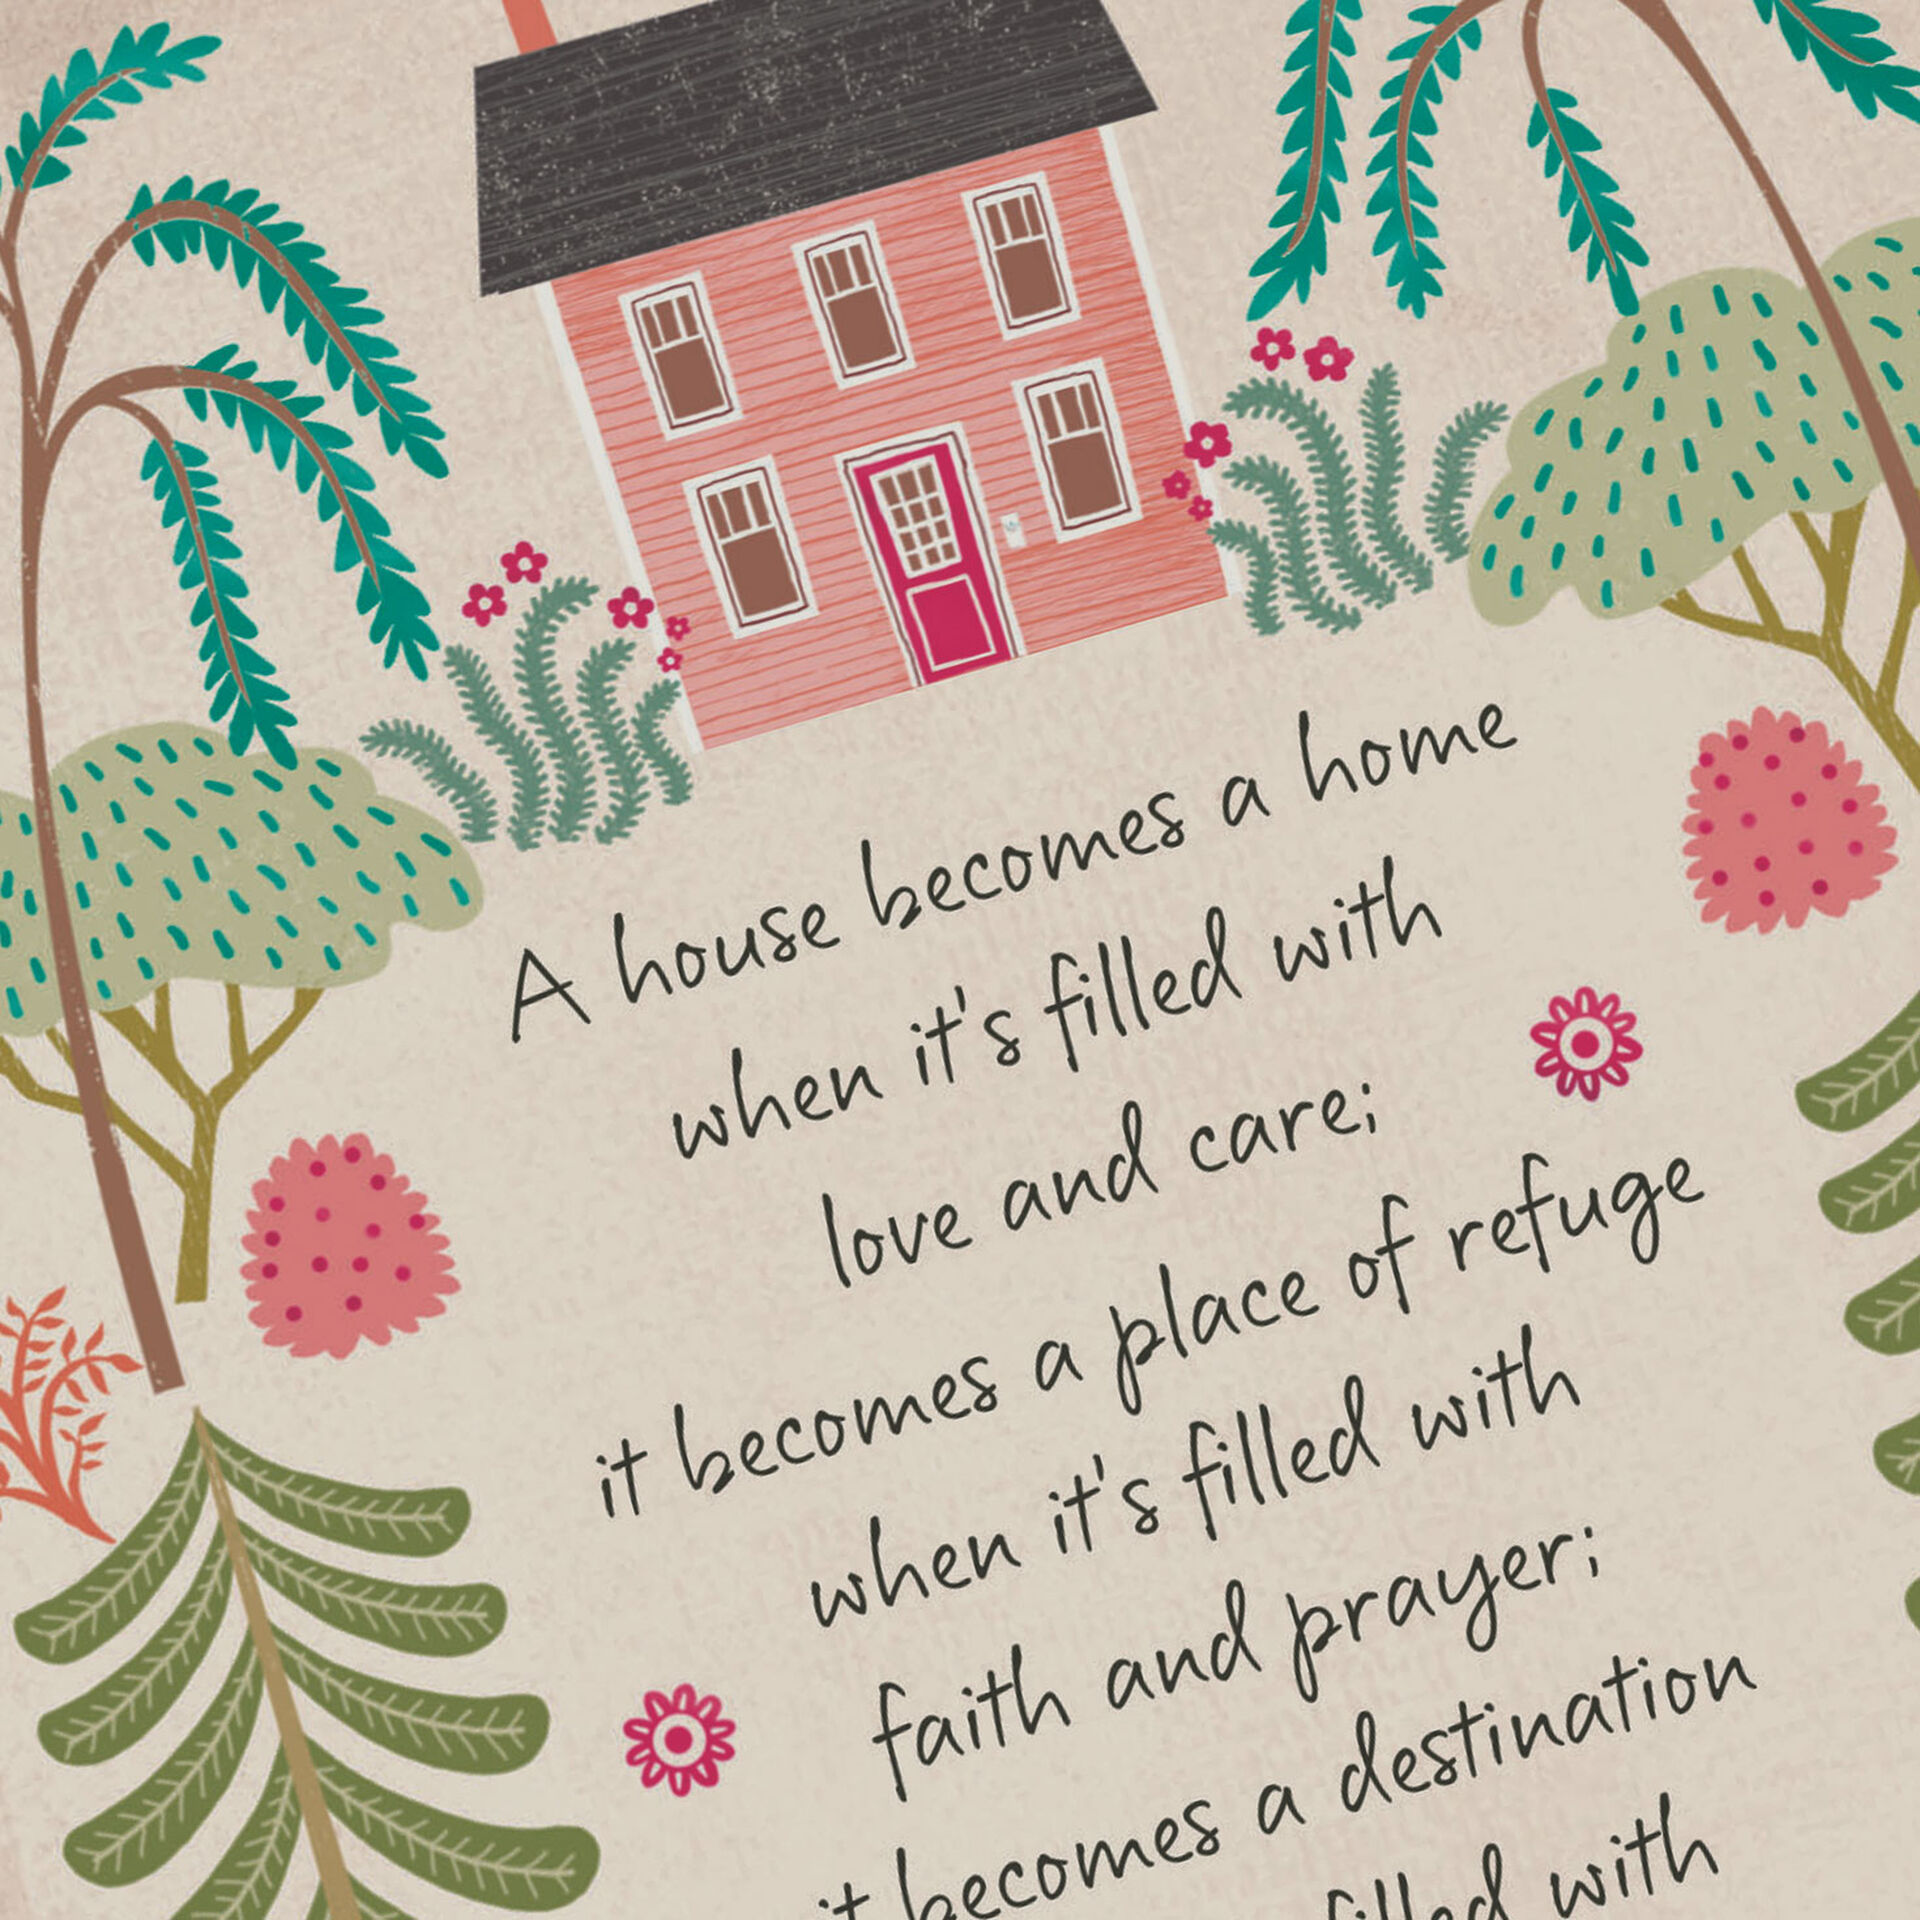 A house becomes a home
when it's filled with
love and care;
it becomes a place of refuge
when it's filled with
faith and prayer;
it becomes a destination
filled with